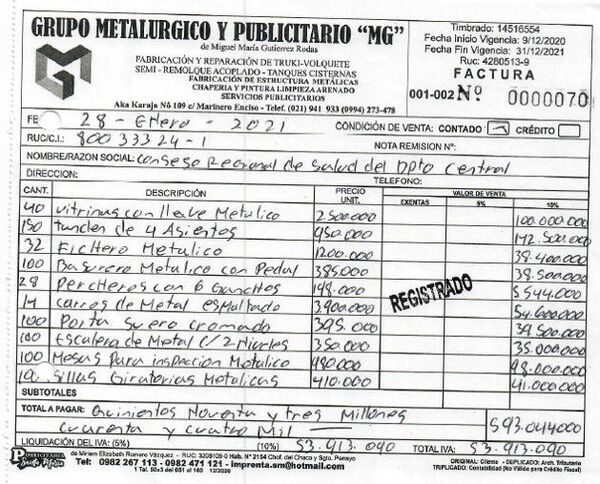 GRUPO METALURGICO Y PUBLICITARIO "MG"
de Miguel María Gutierrez Rodas
FABRICACIÓN Y REPARACIÓN DE TRUKI-VOLQUETE
SEMI - REMOLQUE ACOPLADO - TANQUES CISTERNAS
FABRICACIÓN DE ESTRUCTURA METÁLICAS
CHAPERIA Y PINTURA LIMPIEZA ARENADO
SERVICIOS PUBLICITARIOS
Aka Karaja Nº 109 c/ Marinero Enciso - Tel. (021) 941 933 (0994) 273-478
Timbrado: 14516554
Fecha Inicio Vigencia: 9/12/2020
Fecha Fin Vigencia: 31/12/2021
Ruc: 4280513-9
FACTURA
001-002 Nº 0000070
FE 28 - Enero - 2021 CONDICIÓN DE VENTA: CONTADO CRÉDITO
RUC/C.I.: 80033324-1 NOTA REMISION Nº:
NOMBRE/RAZON SOCIAL: Consejo Regional de Salud del Dpto Central
DIRECCION: TELEFONO:
CANT. DESCRIPCIÓN PRECIO UNIT. VALOR DE VENTA
EXENTAS 5% 10%
40 vitrinas con llave Metalico 2.500.000 100.000.000
150 tanden de 4 Asientos 950.000 142.500.000
32 Fichero Metalico 1200.000 38.400.000
100 Basurero Metalico con Pedal 385.000 38.500.000
28 Percheros con 6 Ganchitos 198.000 5.544.000
14 carros de Metal esmaltado 3.900.000 54.600.000
100 Porta suero cromado 395.000 39.500.000
100 Escalera de Metal c/ 2 Niveles 350.000 35.000.000
100 Mesas para inspeccion Metalico 980.000 98.000.000
Sillas Giratorias Metalicas 410.000 41.000.000
REGISTRADO
SUBTOTALES
TOTAL A PAGAR: Quinientos Noventa y tres Millones
cuarenta y cuatro Mil 593.044.000
LIQUIDACIÓN DEL IVA: (5%) (10%) 53.913.090 TOTAL IVA: 53.913.090
de Miriam Elizabeth Romero Vázquez - RUC: 3208109-0 Hab. Nº 2154 Chof. del Chaco y Sgto. Panayo
Tel: 0982 267 113 - 0982 471 121 - imprenta.sm@hotmail.com
1 Tal. 50x3 del 051 al 100 12/2020
ORIGINAL: Cliente - DUPLICADO: Arch. Tributario
TRIPLICADO: Contabilidad (No Válido para Crédito Fiscal)